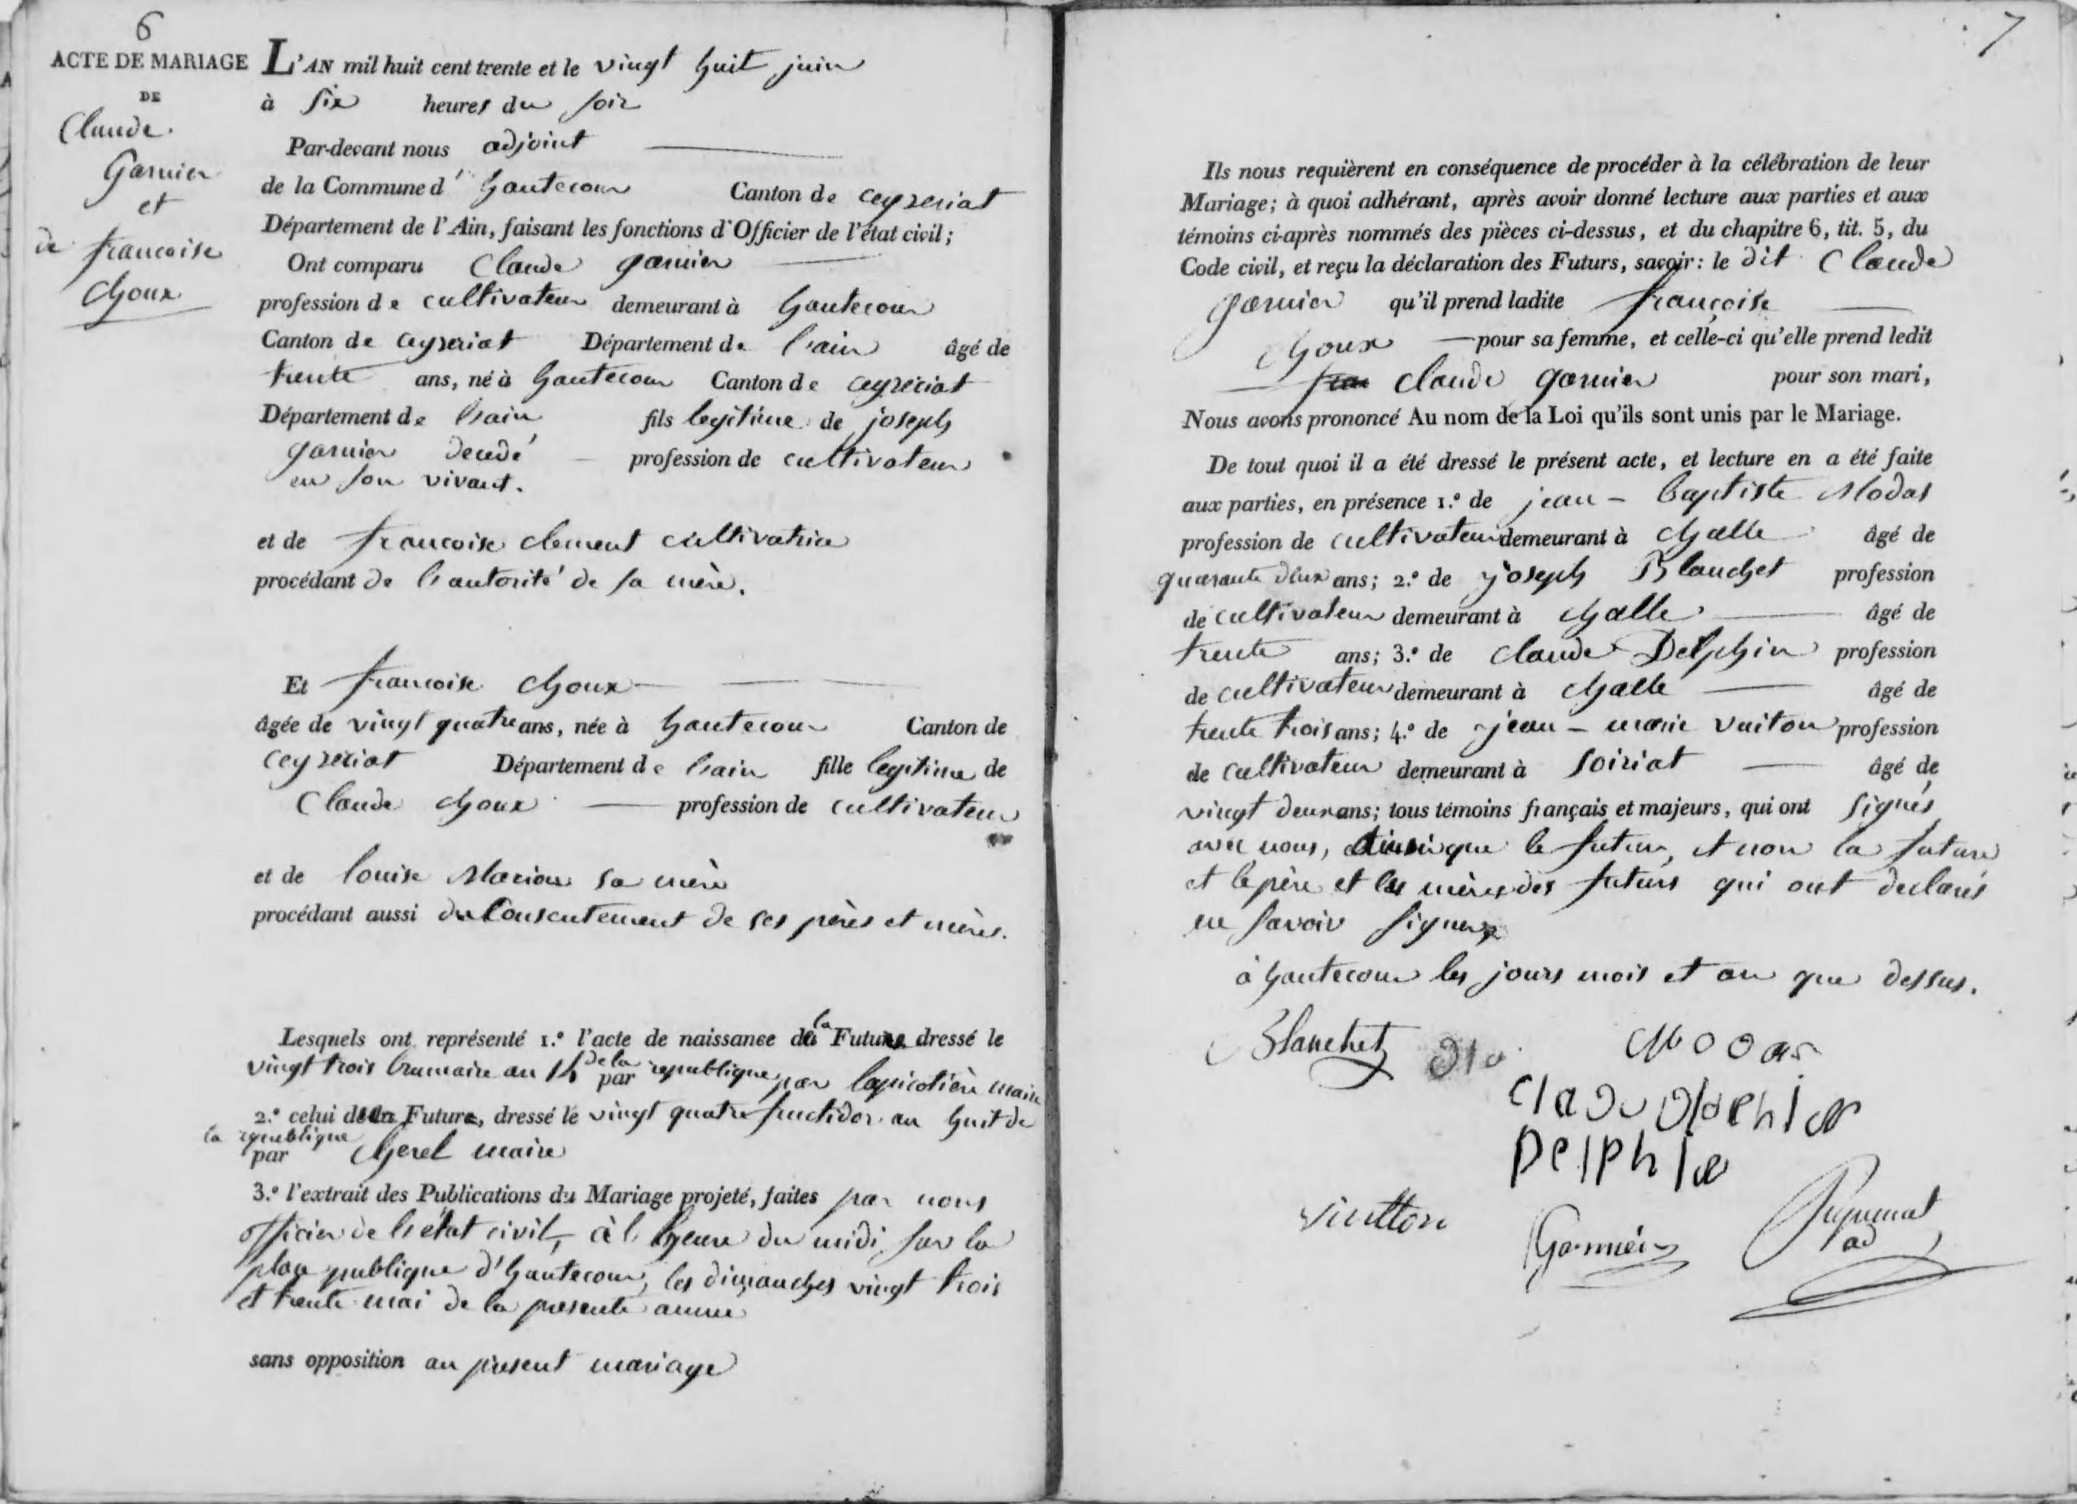 6
ACTE DE MARIAGE
DE
Claude
Garnier
et
de francoise
Choux
L'AN mil huit cent trente et le vingt huit juin
à six heures du soir
Par-devant nous adjoint
de la Commune d' hautecour Canton de ceyzeriat
Département de l'Ain, faisant les fonctions d'Officier de l'état civil;
Ont comparu Claude garnier
profession de cultivateur demeurant à hautecour
Canton de ceyzeriat Département de l'ain âgé de
trente ans, né à hautecour Canton de ceyzeriat
Département de l'ain fils legitime de joseph
garnier decedé profession de cultivateur
en son vivant.
et de francoise clement cultivatrice
procédant de l'autorité de sa mère.
Et francoise choux
âgée de vingt quatre ans, née à hautecour Canton de
ceyzeriat Département de l'ain fille legitime de
Claude choux profession de cultivateur
et de louise Marion sa mère
procédant aussi du Consentement de ses pères et mères.
Lesquels ont représenté 1.º l'acte de naissance de la Future dressé le
vingt trois brumaire an 14 de la republique par lapicotière maire
2.º celui du Futur, dressé le vingt quatre fructidor an huit de
la republique
par cherel maire
3.º l'extrait des Publications du Mariage projeté, faites par nous
officier de l'état civil, à l'heure du midi sur la
place publique d'hautecour, les dimanches vingt trois
et trente mai de la presente annee
sans opposition au present mariage
7
Ils nous requièrent en conséquence de procéder à la célébration de leur
Mariage; à quoi adhérant, après avoir donné lecture aux parties et aux
témoins ci-après nommés des pièces ci-dessus, et du chapitre 6, tit. 5, du
Code civil, et reçu la déclaration des Futurs, savoir: le dit Claude
garnier qu'il prend ladite françoise
choux pour sa femme, et celle-ci qu'elle prend ledit
claude garnier pour son mari,
Nous avons prononcé Au nom de la Loi qu'ils sont unis par le Mariage.
De tout quoi il a été dressé le présent acte, et lecture en a été faite
aux parties, en présence 1.º de jean - baptiste Modas
profession de cultivateur demeurant à challe âgé de
quarante deux ans; 2.º de joseph Blanchet profession
de cultivateur demeurant à challe âgé de
trente ans; 3.º de claude Delphin profession
de cultivateur demeurant à challe âgé de
trente trois ans; 4.º de jean - marie vuiton profession
de cultivateur demeurant à soiriat âgé de
vingt deux ans; tous témoins français et majeurs, qui ont signés
avec nous, ainsi que le futur, et non la future
et le père et les mères des futurs qui ont declarés
ne savoir signer
à hautecour les jours mois et an que dessus.
Blanchet Modas
Delphin
Vuitton Garnier
ad